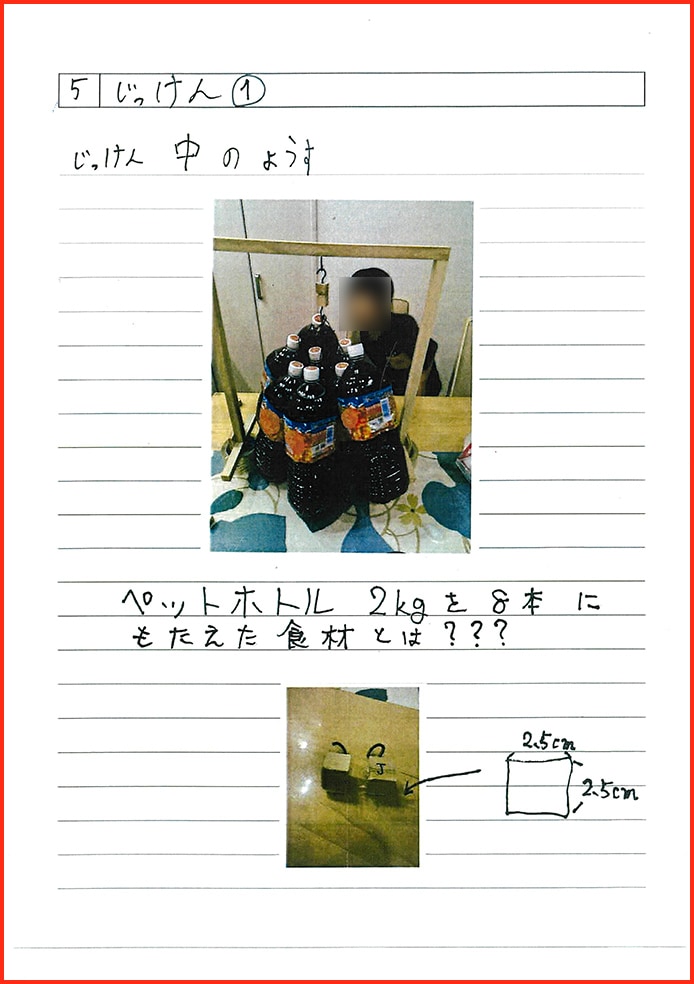 5 じっけん ①
じっけん 中 の ようす
ペットホトル 2kg を 8本 に
もたえた 食材 とは ? ? ?
J
2.5cm
2.5cm